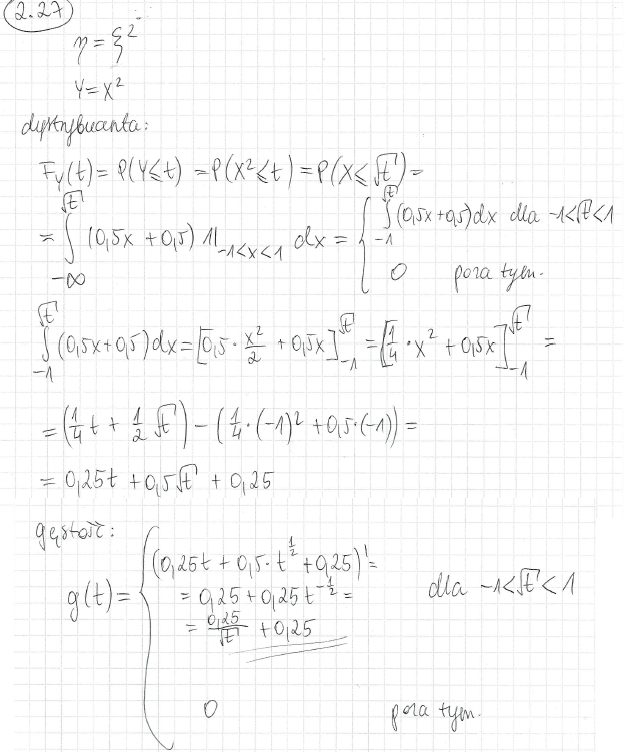 2.27
η = ξ²
Y = X²
dystrybuanta:
F_Y(t) = P(Y ≤ t) = P(X² ≤ t) = P(X ≤ √t) =
= ∫_{-∞}^{√t} (0,5x + 0,5) 1|_{-1<x<1} dx = { ∫_{-1}^{√t} (0,5x + 0,5) dx dla -1<√t<1
0 poza tym.
∫_{-1}^{√t} (0,5x + 0,5) dx = [0,5 · x²/2 + 0,5x]_{-1}^{√t} = [1/4 · x² + 0,5x]_{-1}^{√t} =
= (1/4 t + 1/2 √t) - (1/4 · (-1)² + 0,5 · (-1)) =
= 0,25t + 0,5√t + 0,25
gęstość:
g(t) = { (0,25t + 0,5 · t^{1/2} + 0,25)' =
= 0,25 + 0,25t^{-1/2} = dla -1<√t<1
= 0,25/√t + 0,25
0 poza tym.